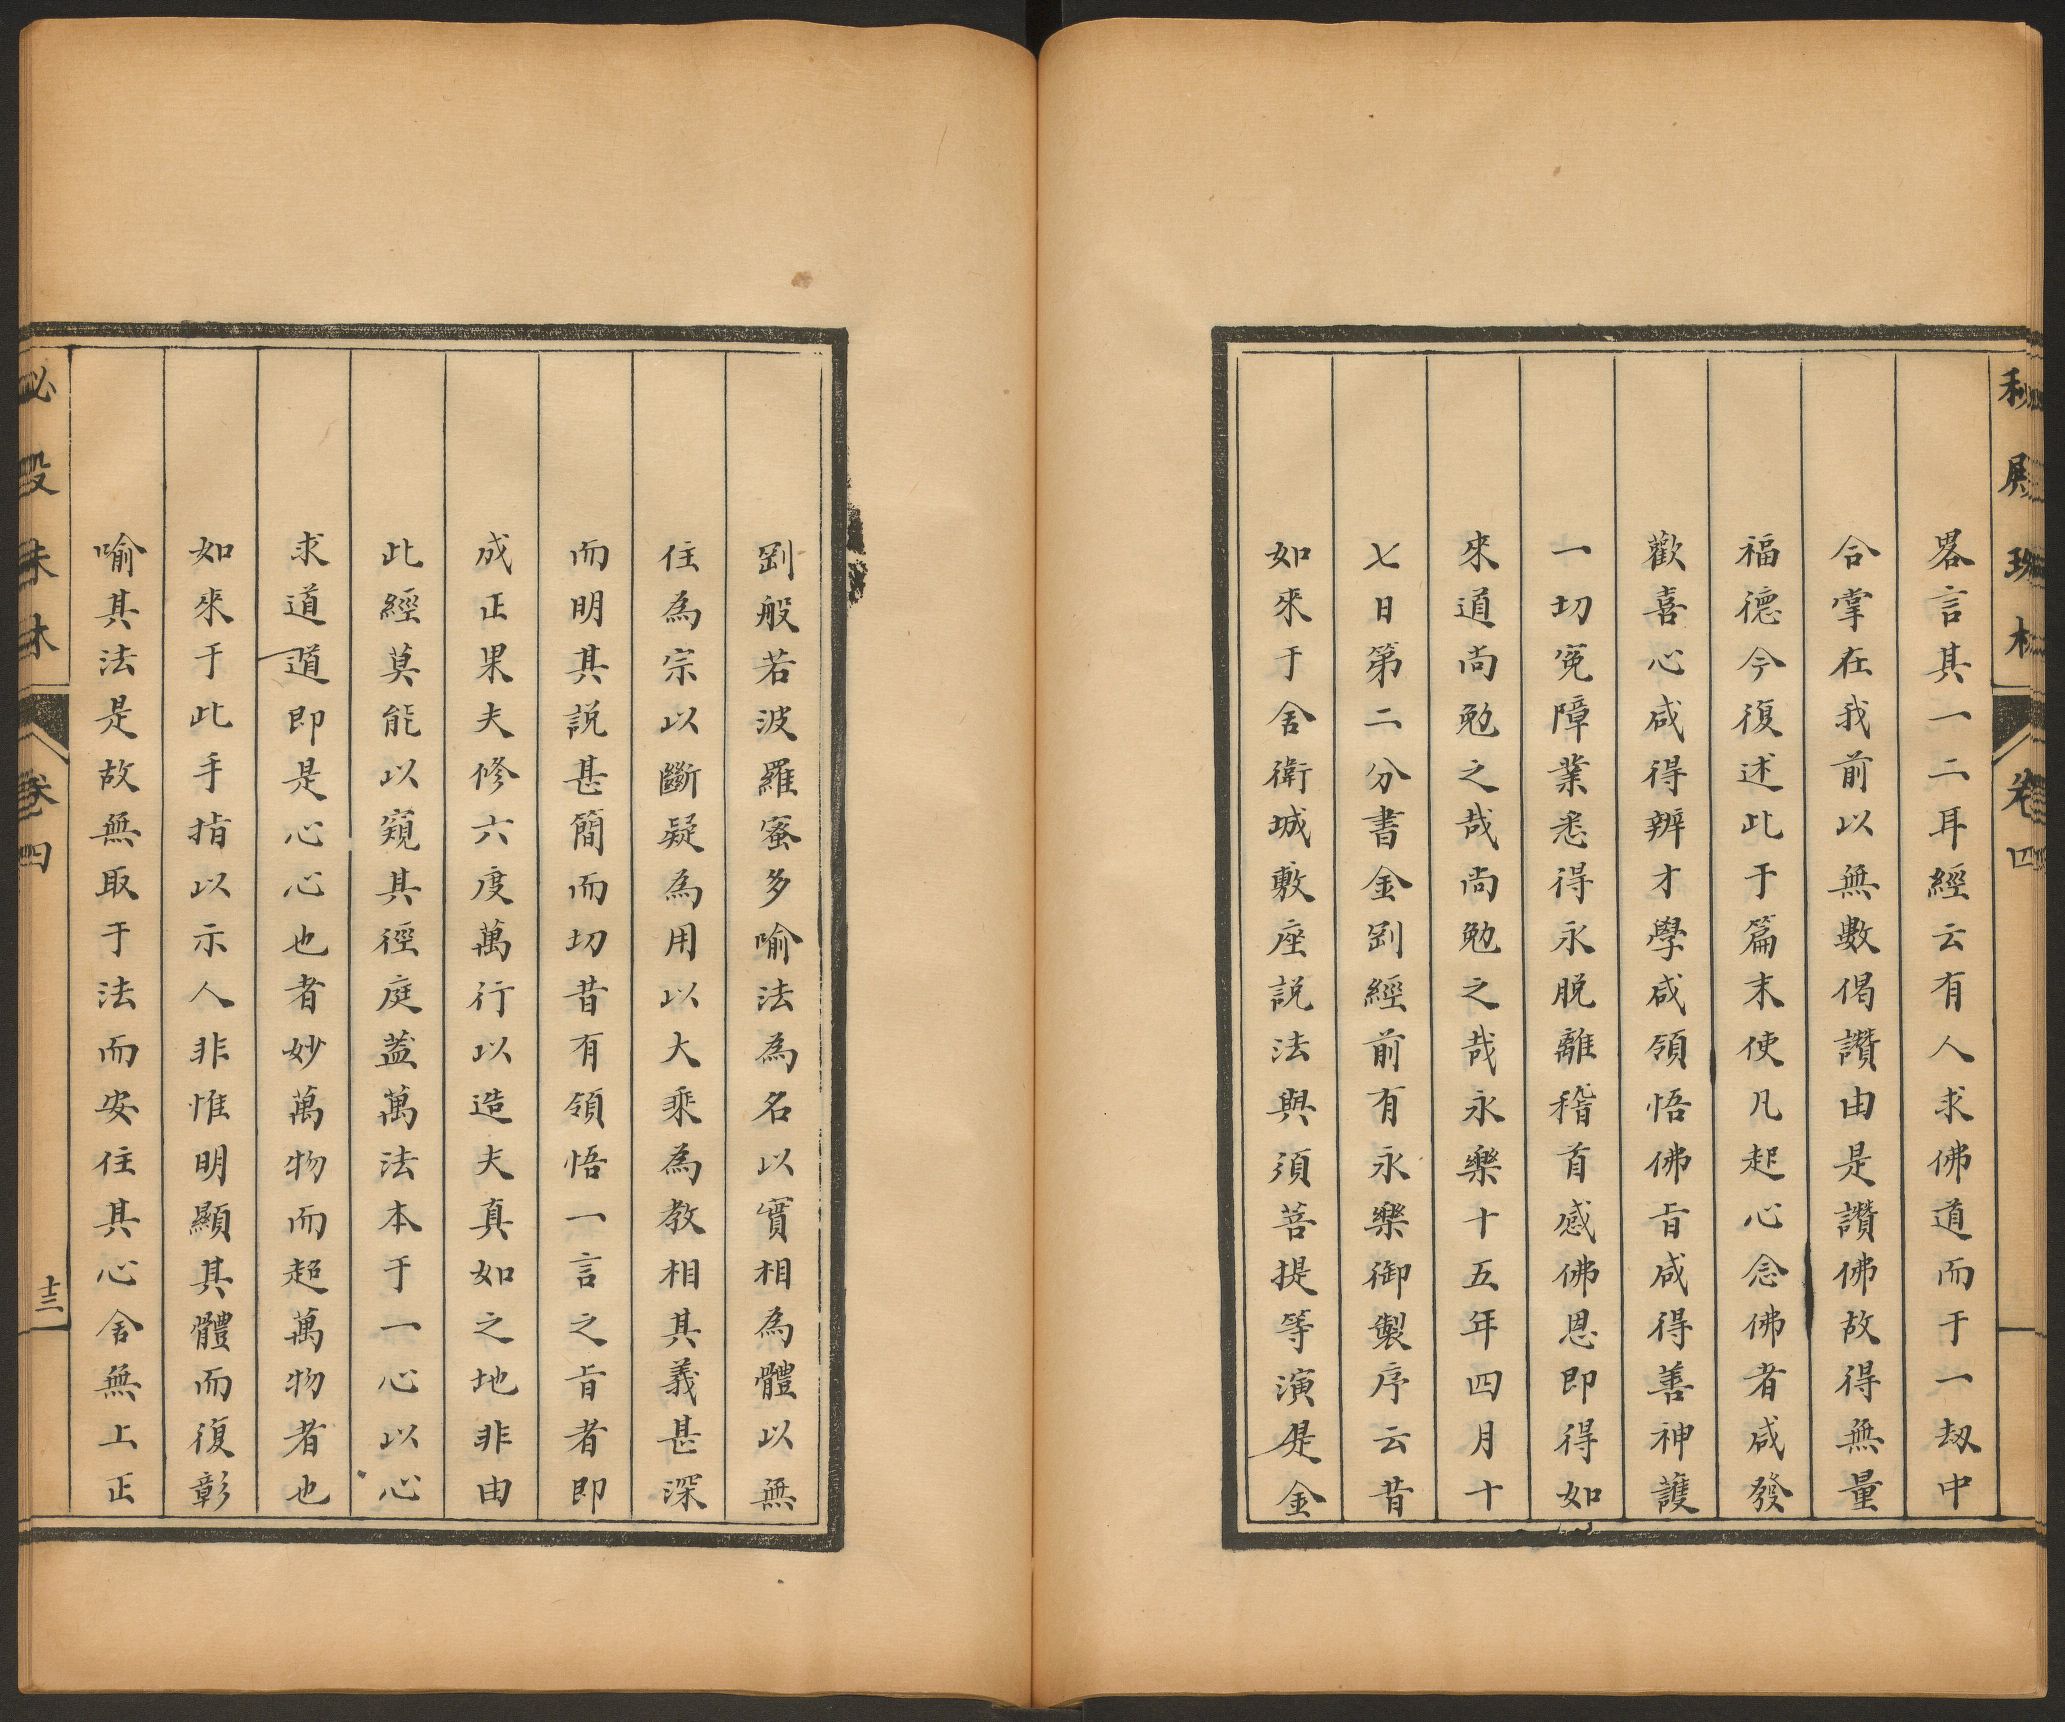 秘殿珠林
卷四
畧言其一二耳經云有人求佛道而于一劫中
合掌在我前以無數偈讚由是讚佛故得無量
福德今復述此于篇末使凡起心念佛者咸發
歡喜心咸得辨才學咸領悟佛旨咸得善神護
一切冤障業悉得永脱離稽首感佛恩即得如
來道尚勉之哉尚勉之哉永樂十五年四月十
七日第二分書金剛經前有永樂御製序云昔
如來于舍衛城敷座説法與須菩提等演是金
剛般若波羅蜜多喻法為名以實相為體以無
住為宗以斷疑為用以大乘為教相其義甚深
而明其説甚簡而切昔有領悟一言之旨者即
成正果夫修六度萬行以造夫真如之地非由
此經莫能以窺其徑庭蓋萬法本于一心以心
求道道即是心心也者妙萬物而超萬物者也
如來于此手指以示人非惟明顯其體而復彰
喻其法是故無取于法而安住其心舍無上正
秘殿珠林
卷四
十三